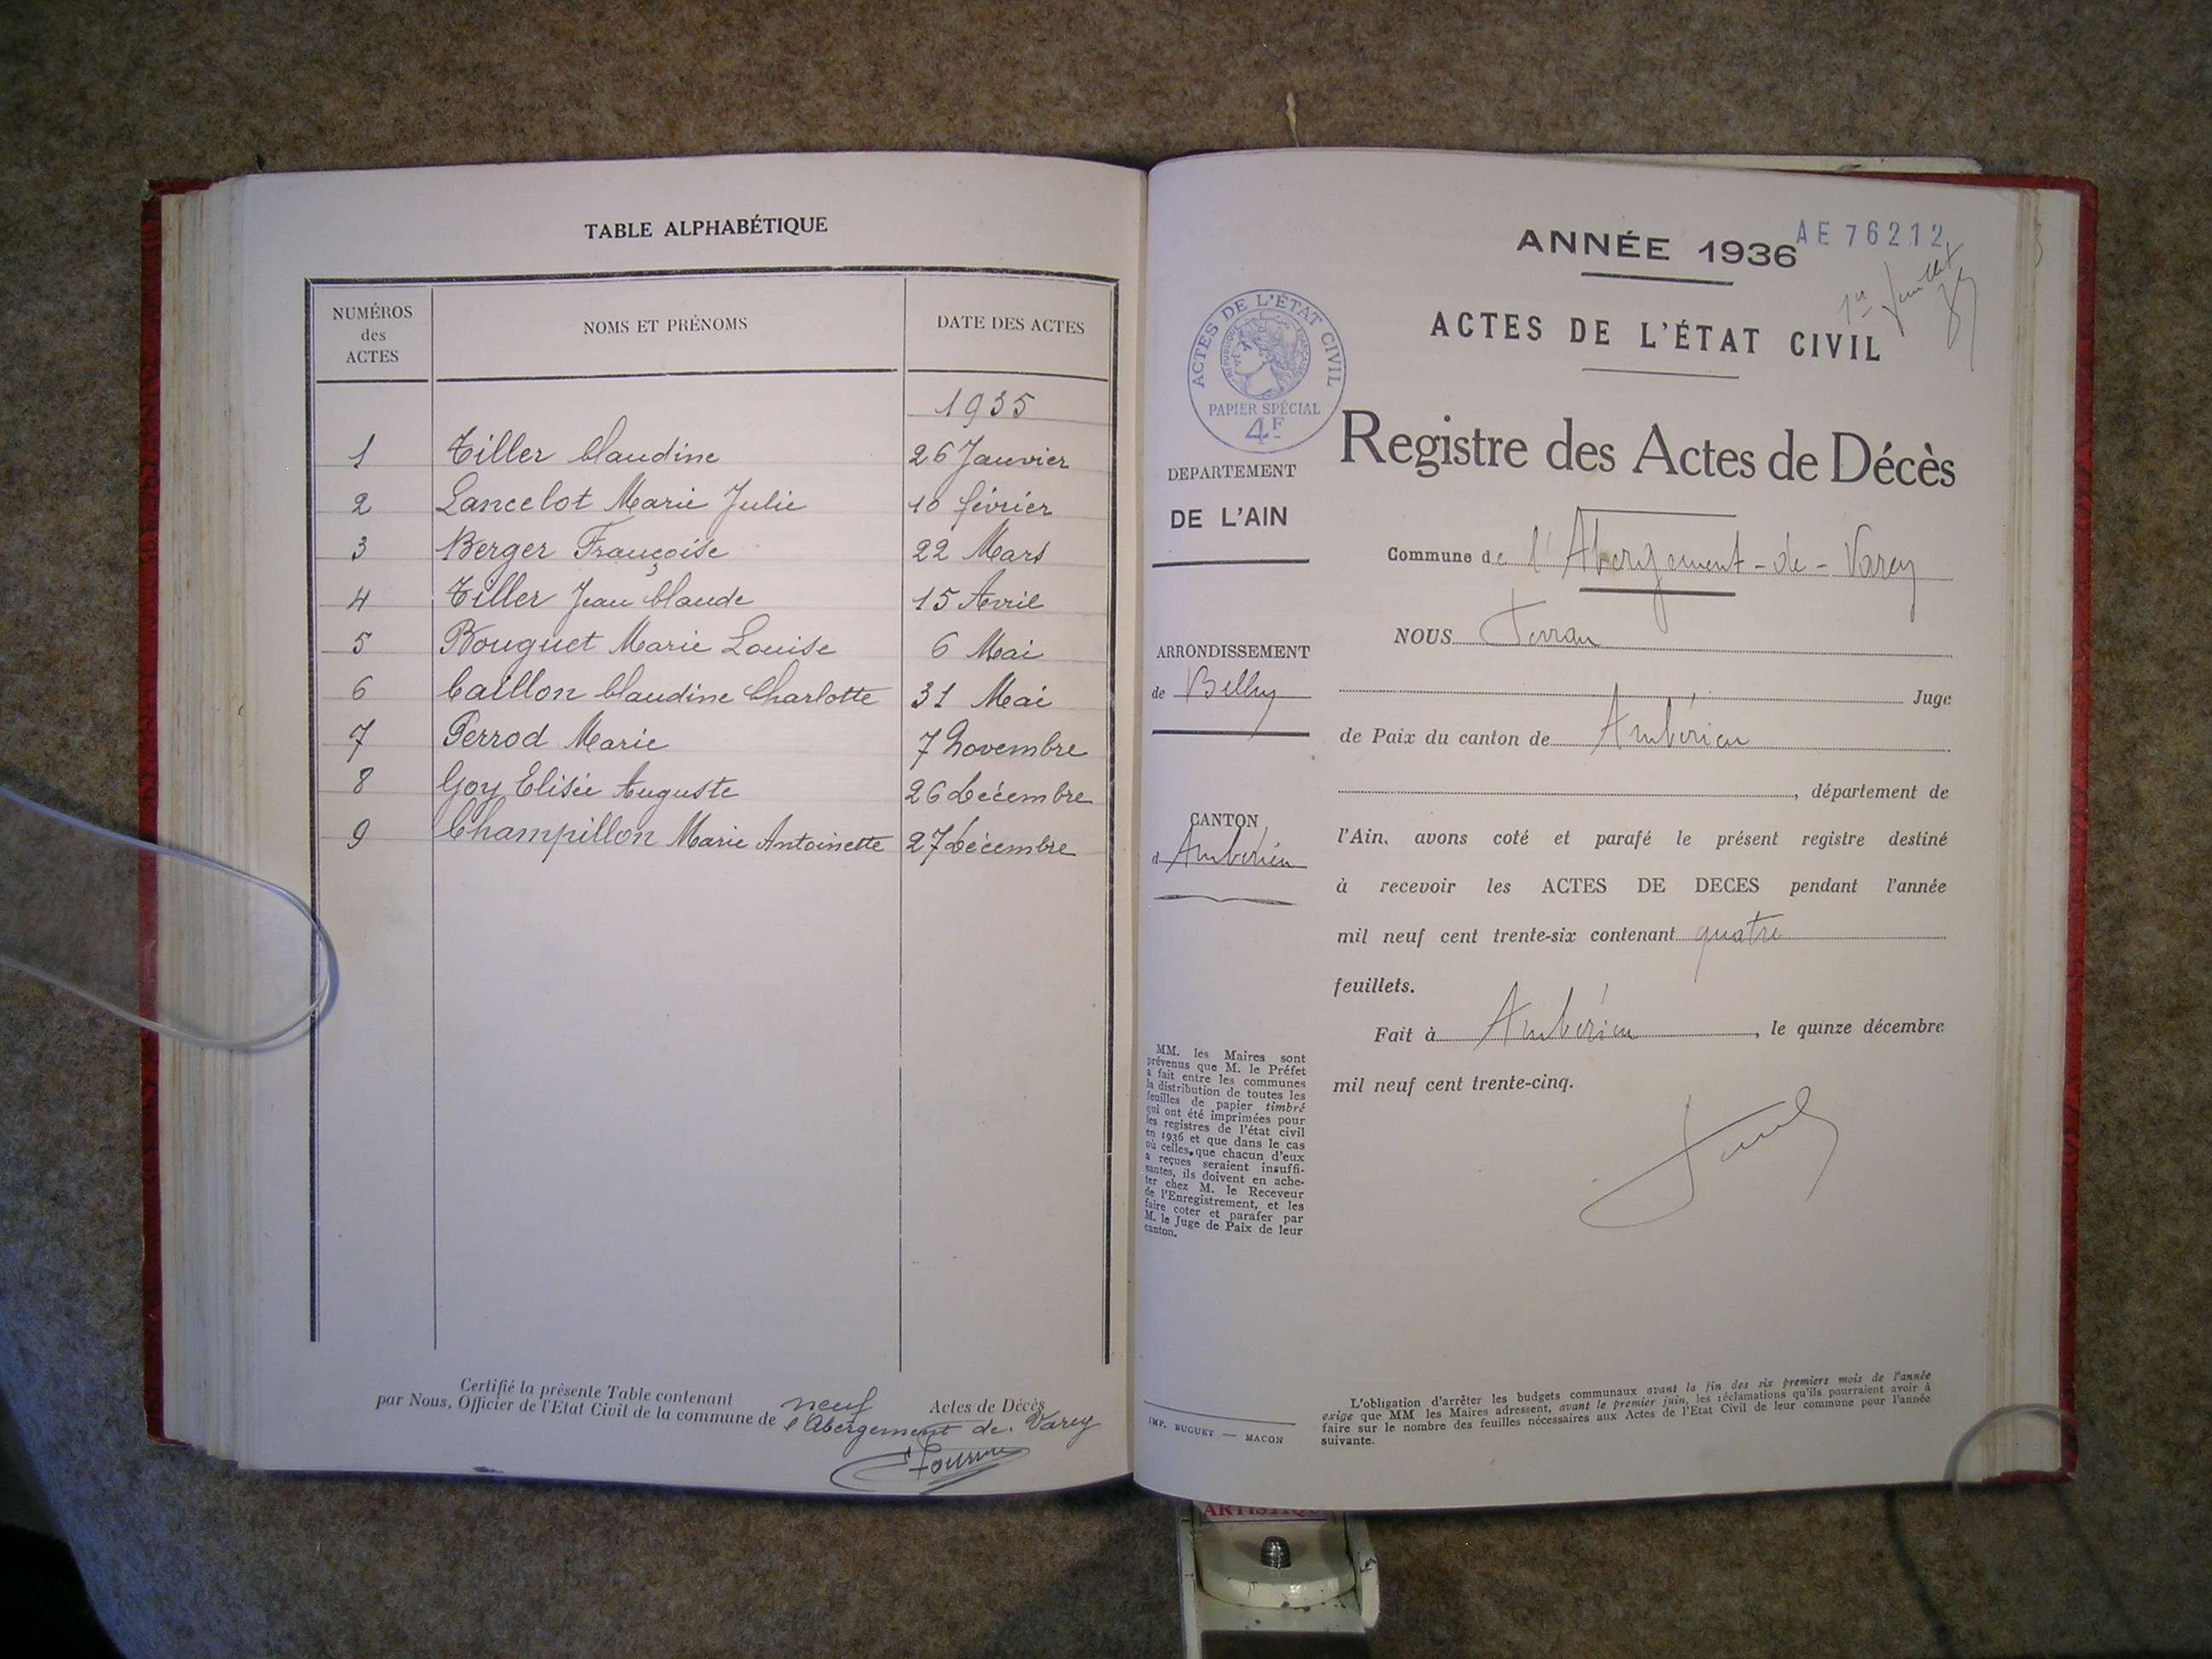 TABLE ALPHABÉTIQUE
NUMÉROS
des
ACTES
NOMS ET PRÉNOMS
DATE DES ACTES
1935
1 Tiller Claudine 26 Janvier
2 Lancelot Marie Julie 10 février
3 Berger Françoise 22 Mars
4 Tiller Jean Claude 15 Avril
5 Bouguet Marie Louise 6 Mai
6 Caillon Claudine Charlotte 31 Mai
7 Perrod Marie 7 Novembre
8 Goy Elisée Auguste 26 Décembre
9 Champillon Marie Antoinette 27 Décembre
Certifié la présente Table contenant neuf Actes de Décès
par Nous, Officier de l'Etat Civil de la commune de l'Abergement de Varey
ANNÉE 1936
AE 76212
ACTES DE L'ÉTAT CIVIL
ACTES DE L'ÉTAT CIVIL
RÉPUBLIQUE FRANÇAISE
PAPIER SPÉCIAL
4F
Registre des Actes de Décès
DEPARTEMENT
DE L'AIN
Commune de l'Abergement-de-Varey
NOUS Ferran
ARRONDISSEMENT
de Belley
Juge
de Paix du canton de Ambérieu
, département de
CANTON
d'Ambérieu
l'Ain, avons coté et parafé le présent registre destiné
à recevoir les ACTES DE DECES pendant l'année
mil neuf cent trente-six contenant quatre
feuillets.
Fait à Ambérieu, le quinze décembre
mil neuf cent trente-cinq.
MM. les Maires sont
prévenus que M. le Préfet
a fait entre les communes
la distribution de toutes les
feuilles de papier timbré
qui ont été imprimées pour
les registres de l'état civil
en 1936 et que dans le cas
où celles, que chacun d'eux
a reçues seraient insuffi-
santes, ils doivent en ache-
ter chez M. le Receveur
de l'Enregistrement, et les
faire coter et parafer par
M. le Juge de Paix de leur
canton.
IMP. BUGUET — MACON
L'obligation d'arrêter les budgets communaux avant la fin des six premiers mois de l'année
exige que MM les Maires adressent, avant le premier juin, les réclamations qu'ils pourraient avoir à
faire sur le nombre des feuilles nécessaires aux Actes de l'Etat Civil de leur commune pour l'année
suivante.